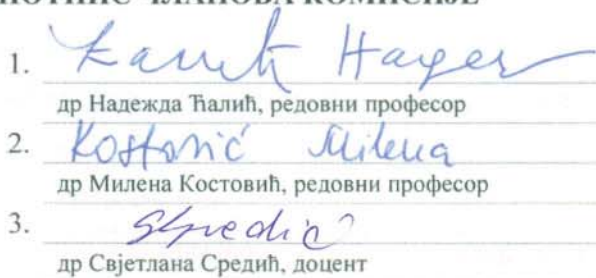 ПОТПИС ЧЛАНОВА КОМИСИЈЕ
1.
др Надежда Ћалић, редовни професор
2. Kostović Milena
др Милена Костовић, редовни професор
3. SSredić
др Свјетлана Средић, доцент